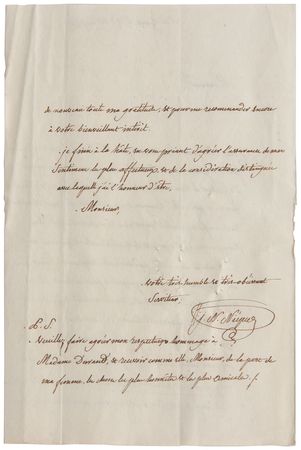 de nouveau toute ma gratitude, & pour me recommander encore
à votre bienveillant intérêt.
je finis à la hâte, en vous priant d'agréer l'assurance de mon
sentiment le plus affectueux & de la considération distinguée
avec laquelle j'ai l'honneur d'être,
Monsieur,
votre très humble & très obéissant
Serviteur
J. N. Niépce
P. S.
veuillez faire agréer mon respectueux hommage à
Madame Durand, & recevoir comme elle, Monsieur, de la part de
ma femme, les choses les plus honnêtes & les plus amicales.